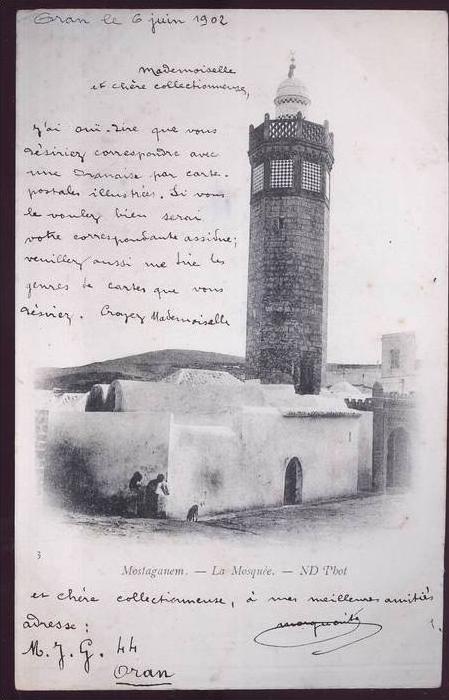 Oran le 6 juin 1902
Mademoiselle
et chère collectionneuse,
J'ai ouï-dire que vous
désiriez correspondre avec
une Oranaise par carte-
postales illustrées. Si vous
le voulez bien serai
votre correspondante assidue;
veuillez aussi me dire les
genres de cartes que vous
désirez. Croyez Mademoiselle
3
Mostaganem. — La Mosquée. — ND Phot
et chère collectionneuse, à mes meilleures amitiés
adresse :
M. J. G. 44
Oran